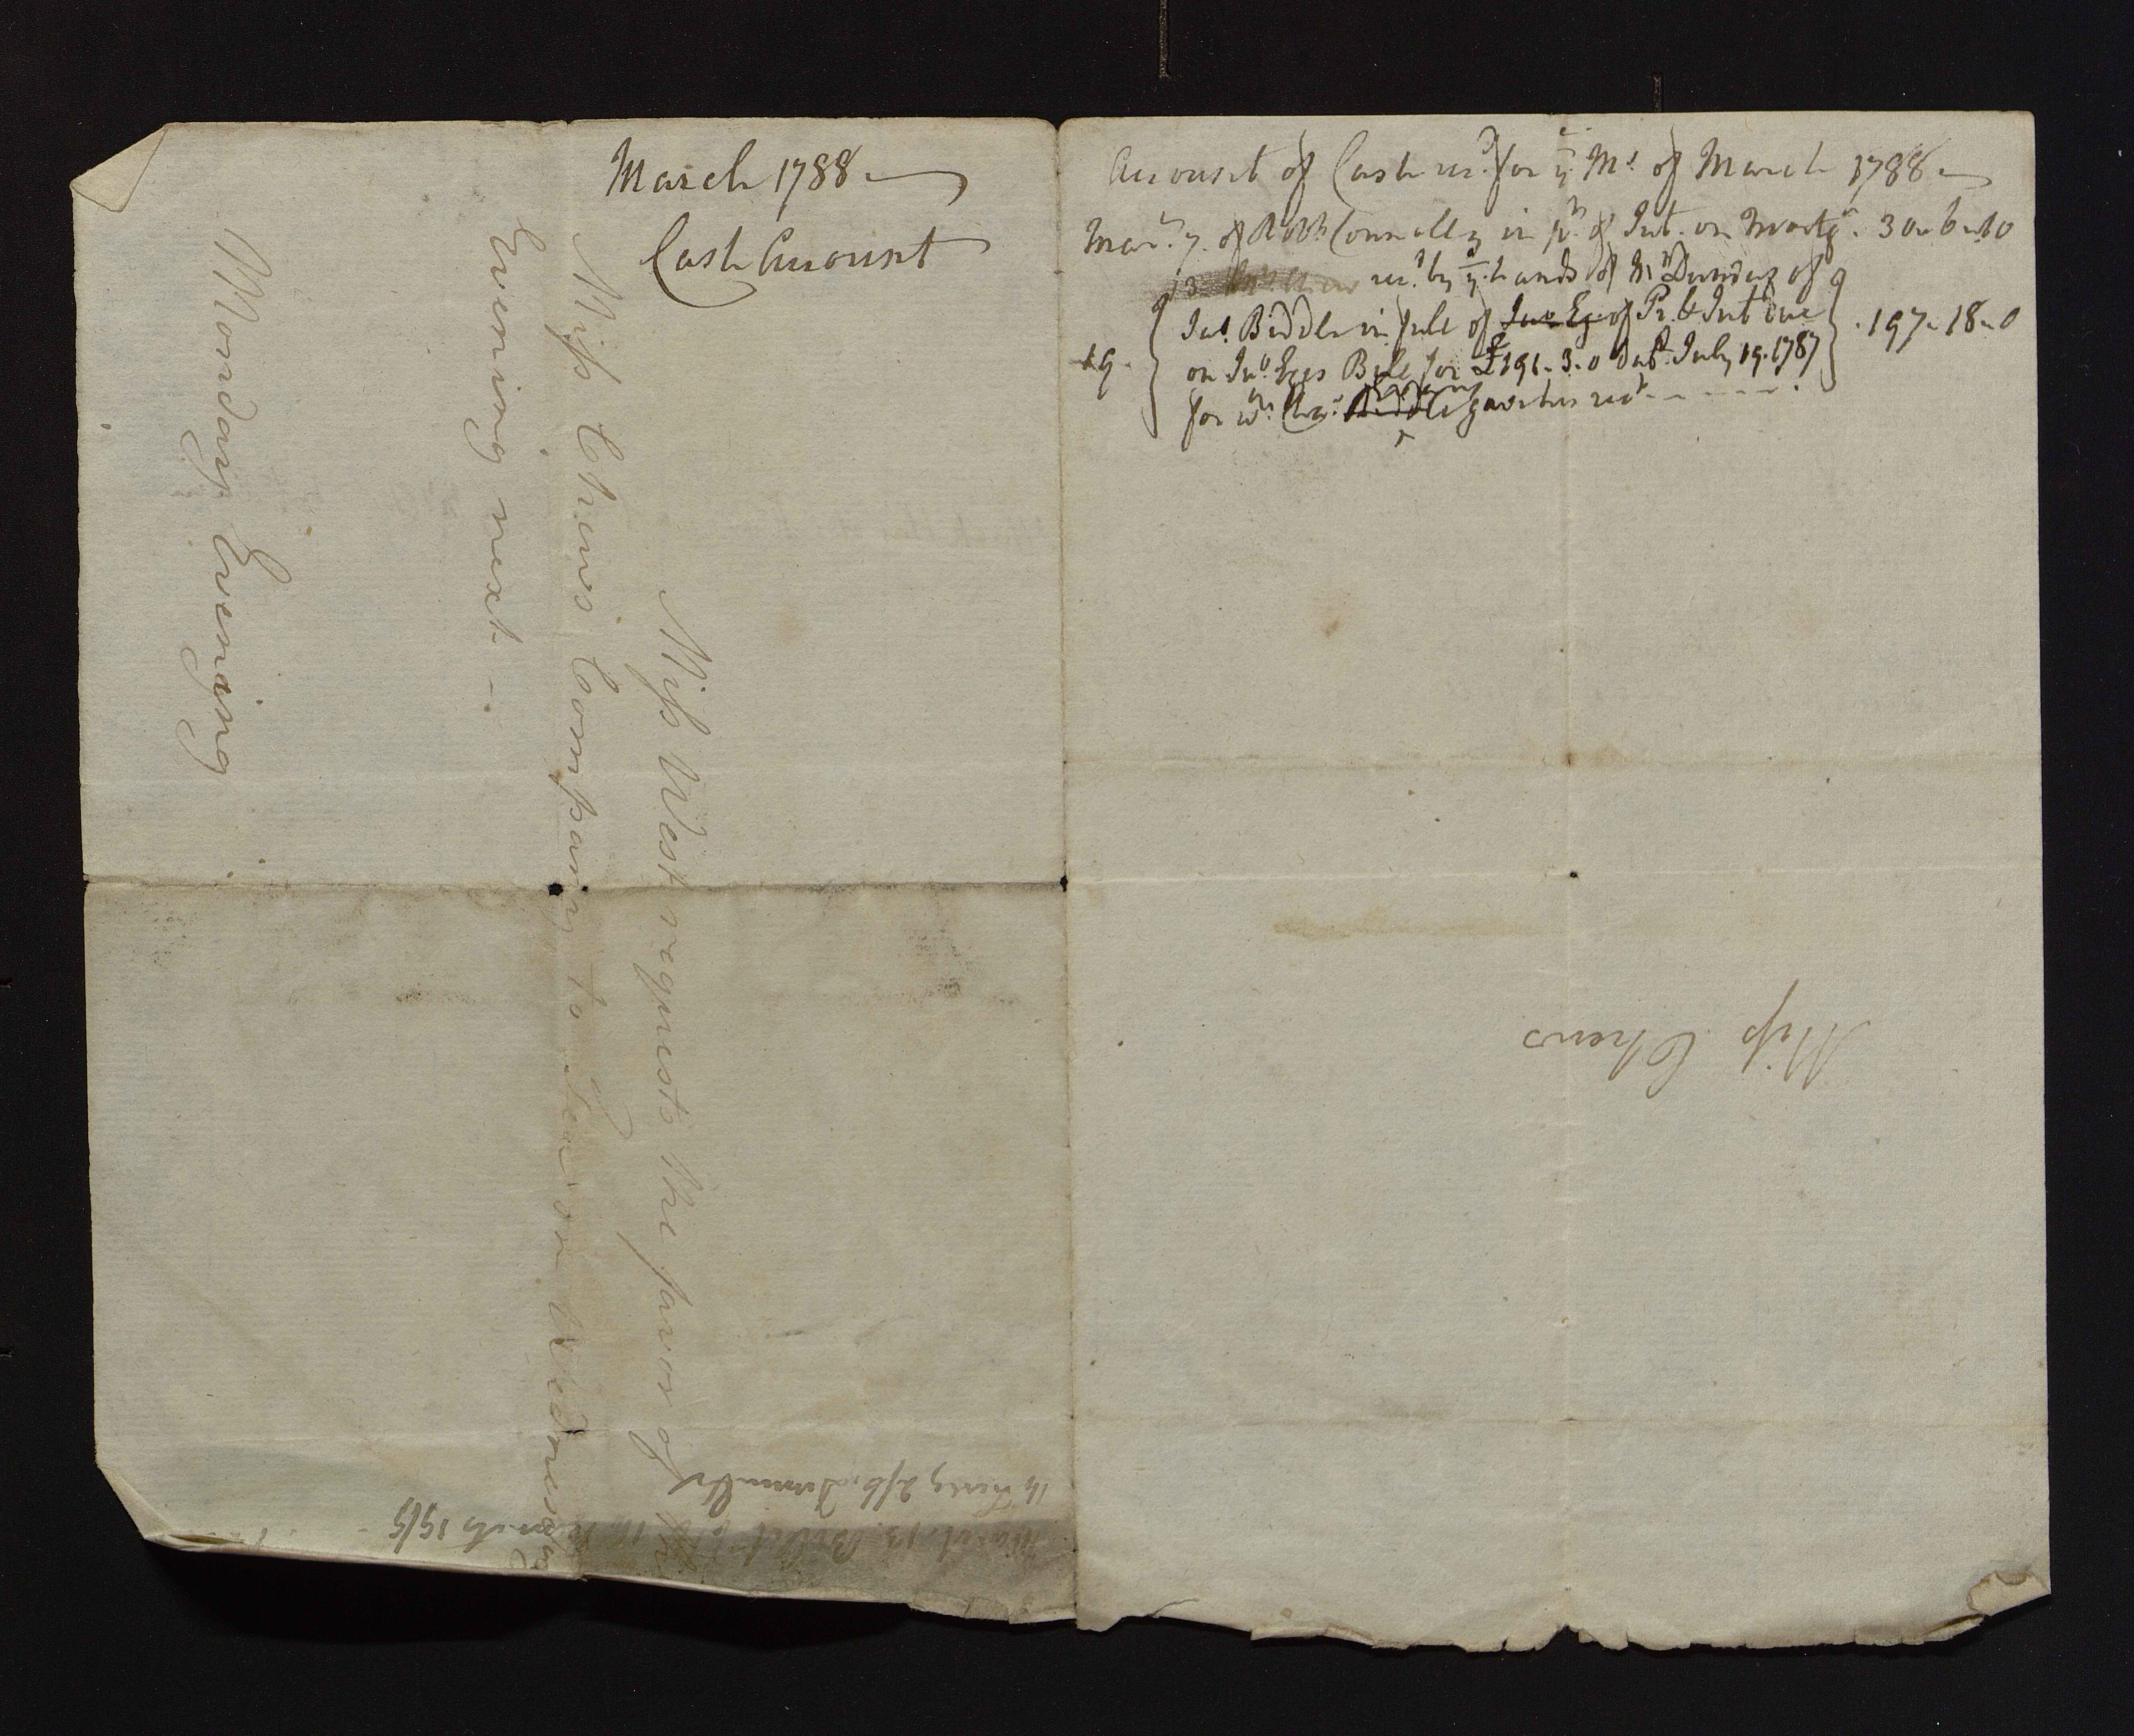 March 1788
Cash Account
Miss West requests the favor of
Miss Chews Company to Tea on Wednesday
Evening next -
Monday Evening
14
March 13
Account of Cash rec.d for ye Mo. of March 1788
Mar. 7. of Robt. Connelly in pt. of Int. on Mortg. 30 " 6 " 10
rec.d by ye hands of Mr Dunday of
19. Jno. Biddle in full of Jno Eg. of Pr. & Int due 197 " 18 " 0
on Jno. Eges Bill for £191 . 3 . 0 dat.d July 19. 1787
for wch. gave his rect
Miss Chews